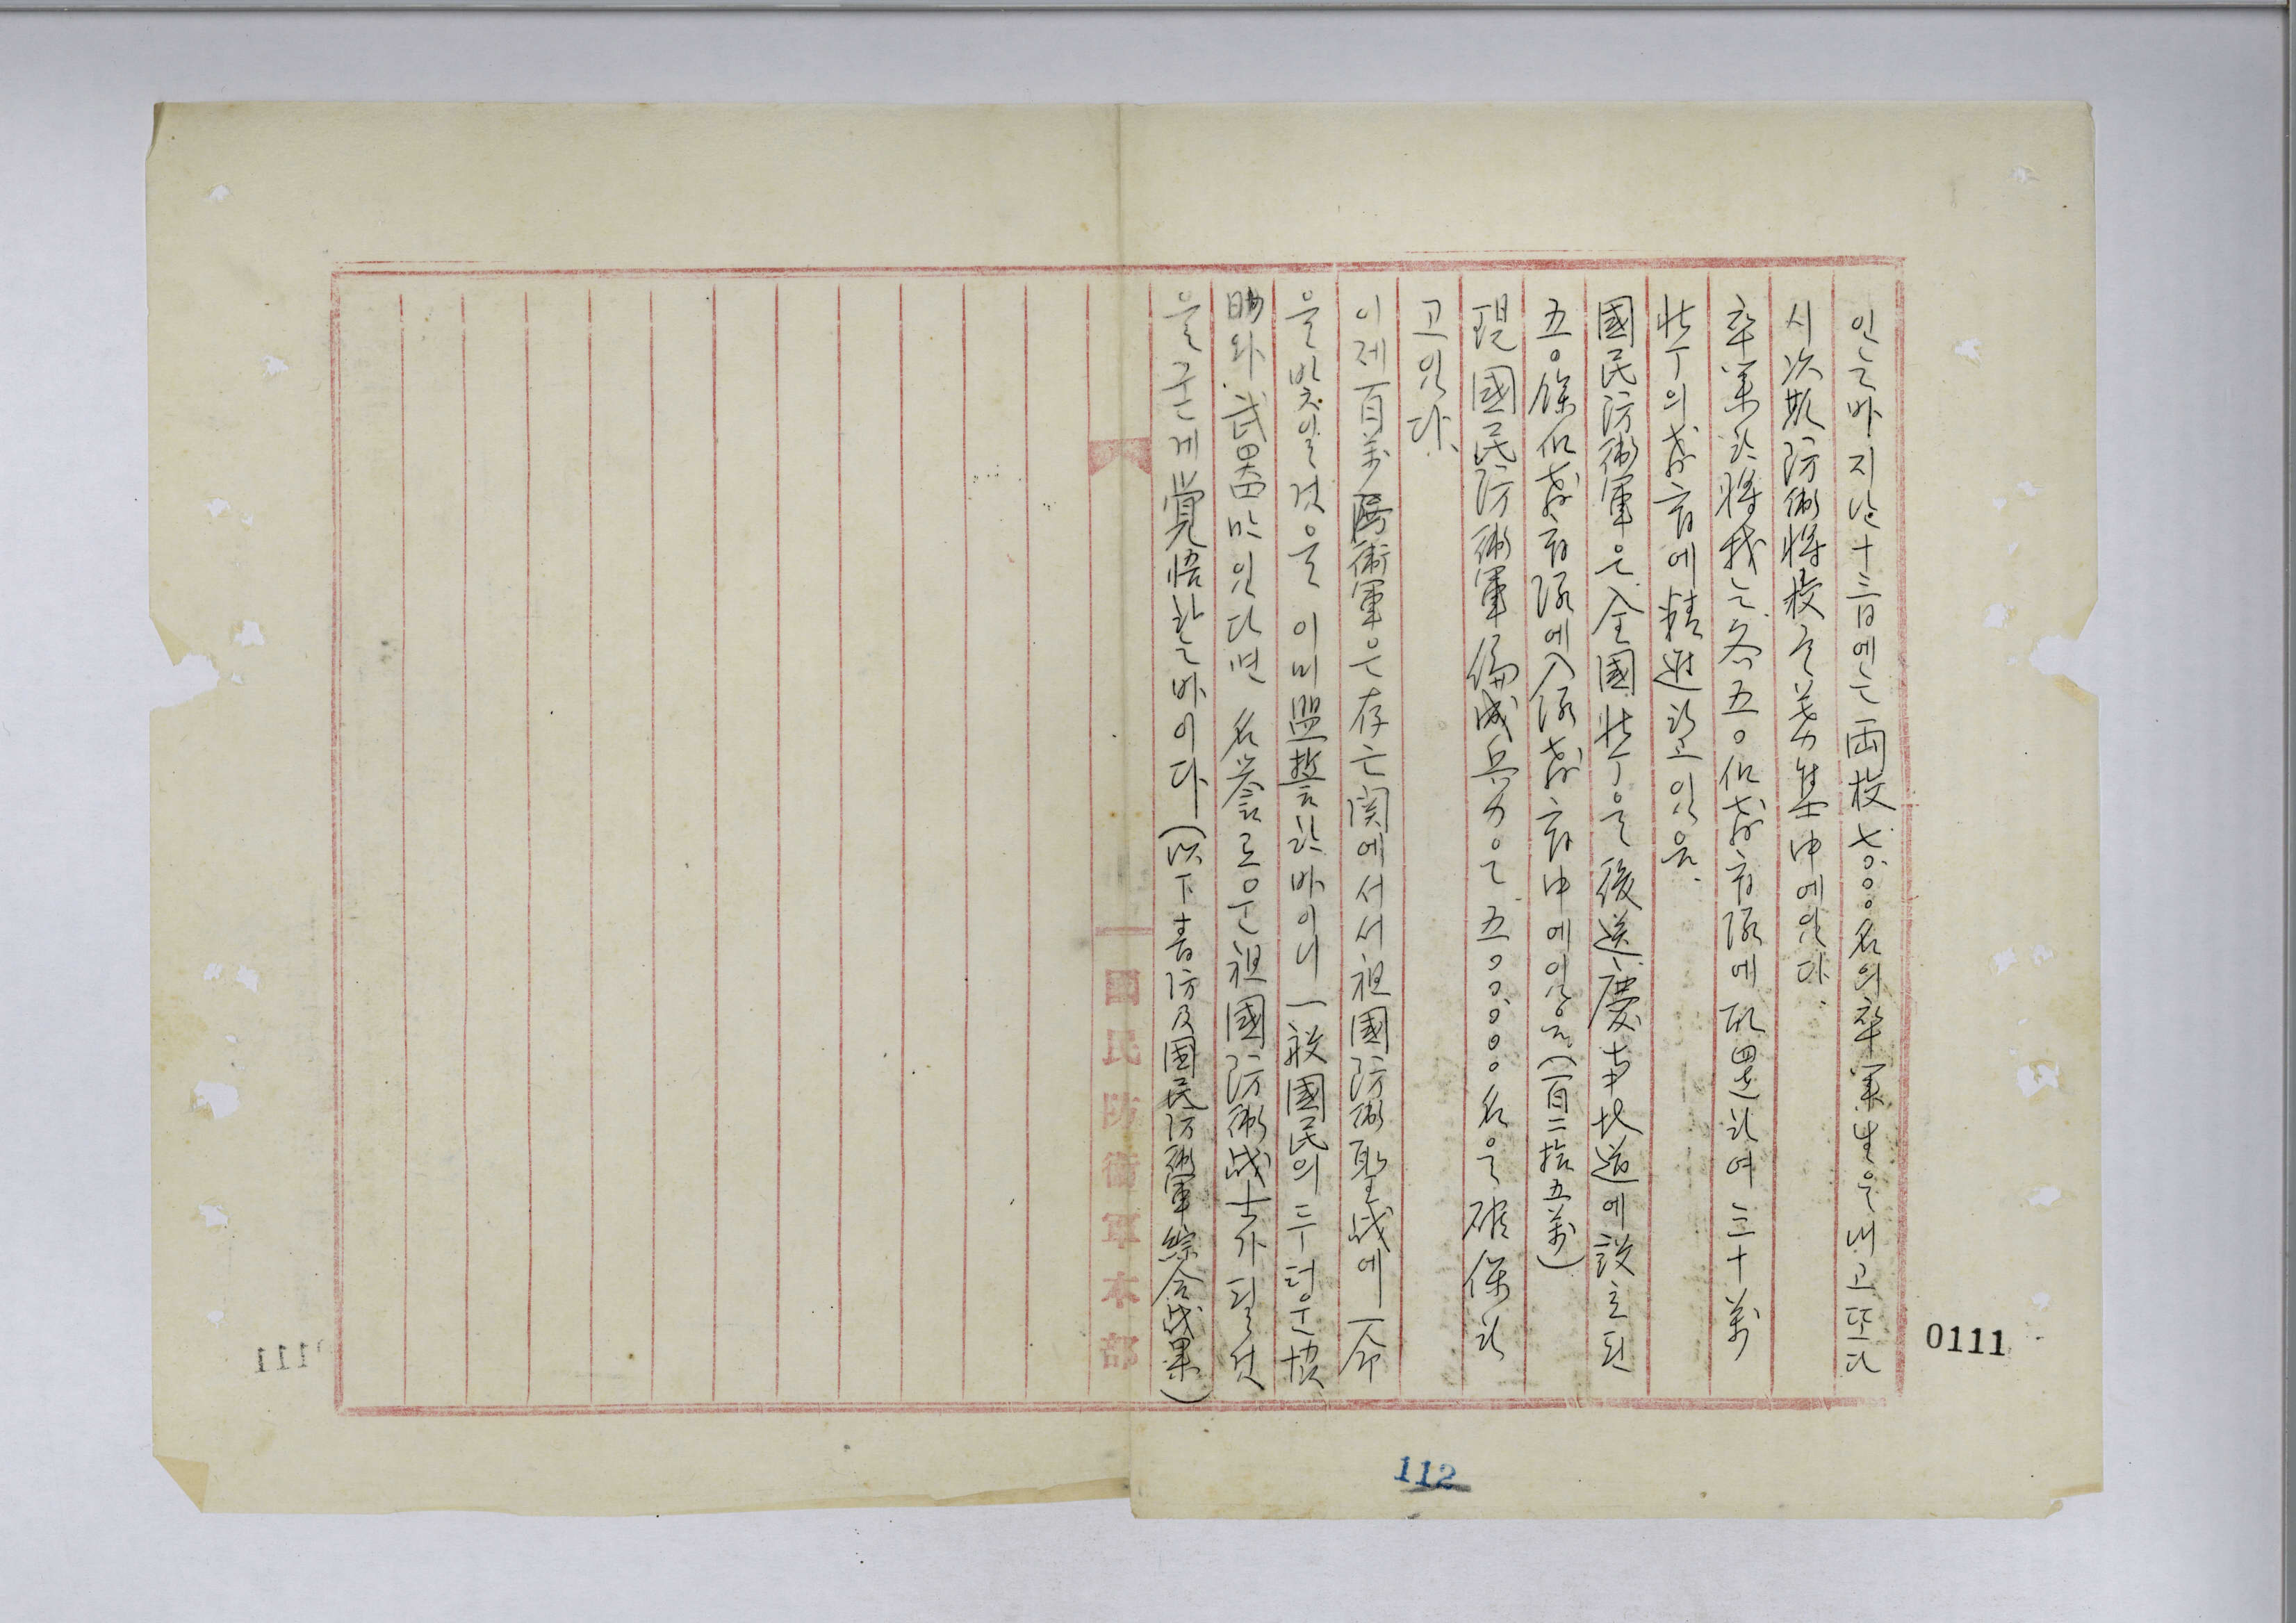 인는바 지난 十三日에는 両校 七〇〇〇名의 卒業生을 내고 또다
시 次期 防衛將校를 募集中에있다.
卒業한 將校는 各 五〇個敎育隊에 配置하여 三十萬
壯丁의 敎育에 精進하고 있음.
國民防衛軍은 全國 壯丁을 後送 慶南北道에 設立된
五〇餘個敎育隊에 入隊 敎育中에있음 (一百二拾五萬)
現 國民防衛軍 編成兵力은 五〇〇.〇〇〇名을 確保하
고 있다.
이제 百萬 防衛軍은 存亡関에서서 祖國防衛聖战에 一命
을 받칠것을 이미 盟誓한바이니 一般國民의 두터운 協
助와 武器만 있다면 名誉로운 祖國防衛战士가 될것
을 굳게 覺悟하는바이다 (以下 青防及國民防衛軍 綜合战果)
國民防衛軍本部
0111
112